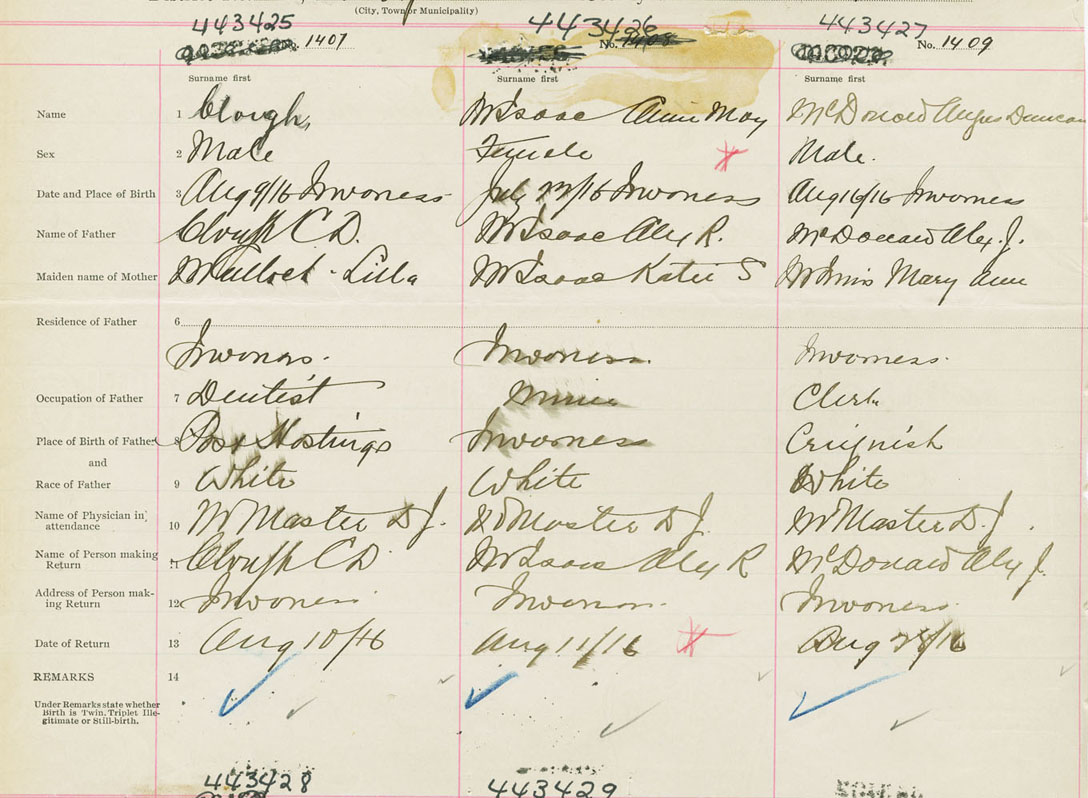 (City, Town or Municipality)
443425 443426 443427
No. 1407 No. 1408 No. 1409
Surname first Surname first Surname first
Name 1 Clough, McIsaac Annie May McDonald Angus Duncan
Sex 2 Male Female Male.
Date and Place of Birth 3 Aug 9/16 Inverness July /16 Inverness Aug 16/16 Inverness
Name of Father Clough C D. McIsaac Alex R. McDonald Alex. J.
Maiden name of Mother McCulloch - Lilla McIsaac Katie S McInnis Mary Ann
Residence of Father 6
Inverness. Inverness. Inverness.
Occupation of Father 7 Dentist Miner Clerk
Place of Birth of Father 8 Port Hastings Inverness Creignish
and
Race of Father 9 White White White
Name of Physician in attendance 10 McMaster D J. McMaster D J. McMaster D. J.
Name of Person making Return 11 Clough C D McIsaac Alex R McDonald Alex J.
Address of Person making Return 12 Inverness Inverness. Inverness.
Date of Return 13 Aug 10/16 Aug 11/16 Aug /16
REMARKS 14
Under Remarks state whether
Birth is Twin, Triplet Ille-
gitimate or Still-birth.
443428 443429